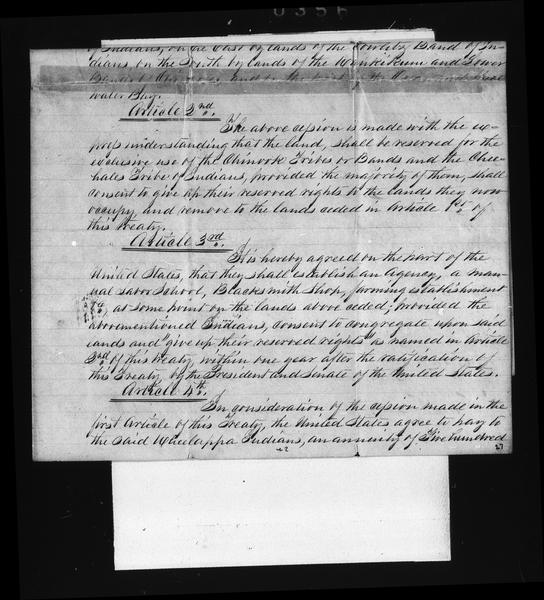 of Indians, on the East by lands of the Cowlitz Band of In-
dians, on the South by lands of the Wankikum and Lower
Band of
water Bay.
Article 2nd.
The above cession is made with the ex-
press understanding that the land, shall be reserved for the
exclusive use of the Chinook Tribes or Bands and the Chee-
hales Tribe of Indians, provided the majority of them, shall
consent to give up their reserved rights to the lands they now
occupy, and remove to the lands ceded in Article 1st. of
this Treaty.
Article 3rd.
It is hereby agreed on the part of the
United States, that they shall establish an Agency, a man-
ual labor School, Blacksmith Shop, farming establishment
&c, at some point on the lands above ceded; provided the
abovementioned Indians, consent to congregate upon said
lands and "give up their reserved rights" as named in Article
2nd. of this Treaty within one year after the ratification of
this Treaty by the President and Senate of the United States.
Article 4th.
In consideration of the cession made in the
first Article of this Treaty, the United States agree to pay to
the said Wheelappa Indians, an annuity of Five hundred
27